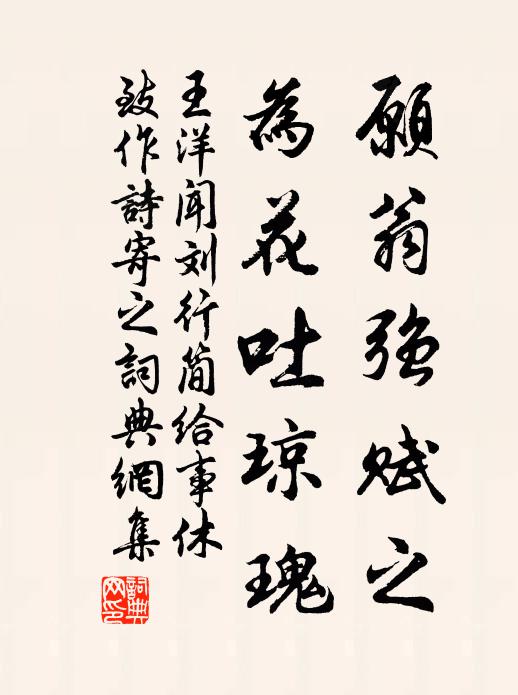 願翁強賦之
為花吐琼瑰
王洋闻刘行简给事休
致作詩寄之詞典網集
詞典网印